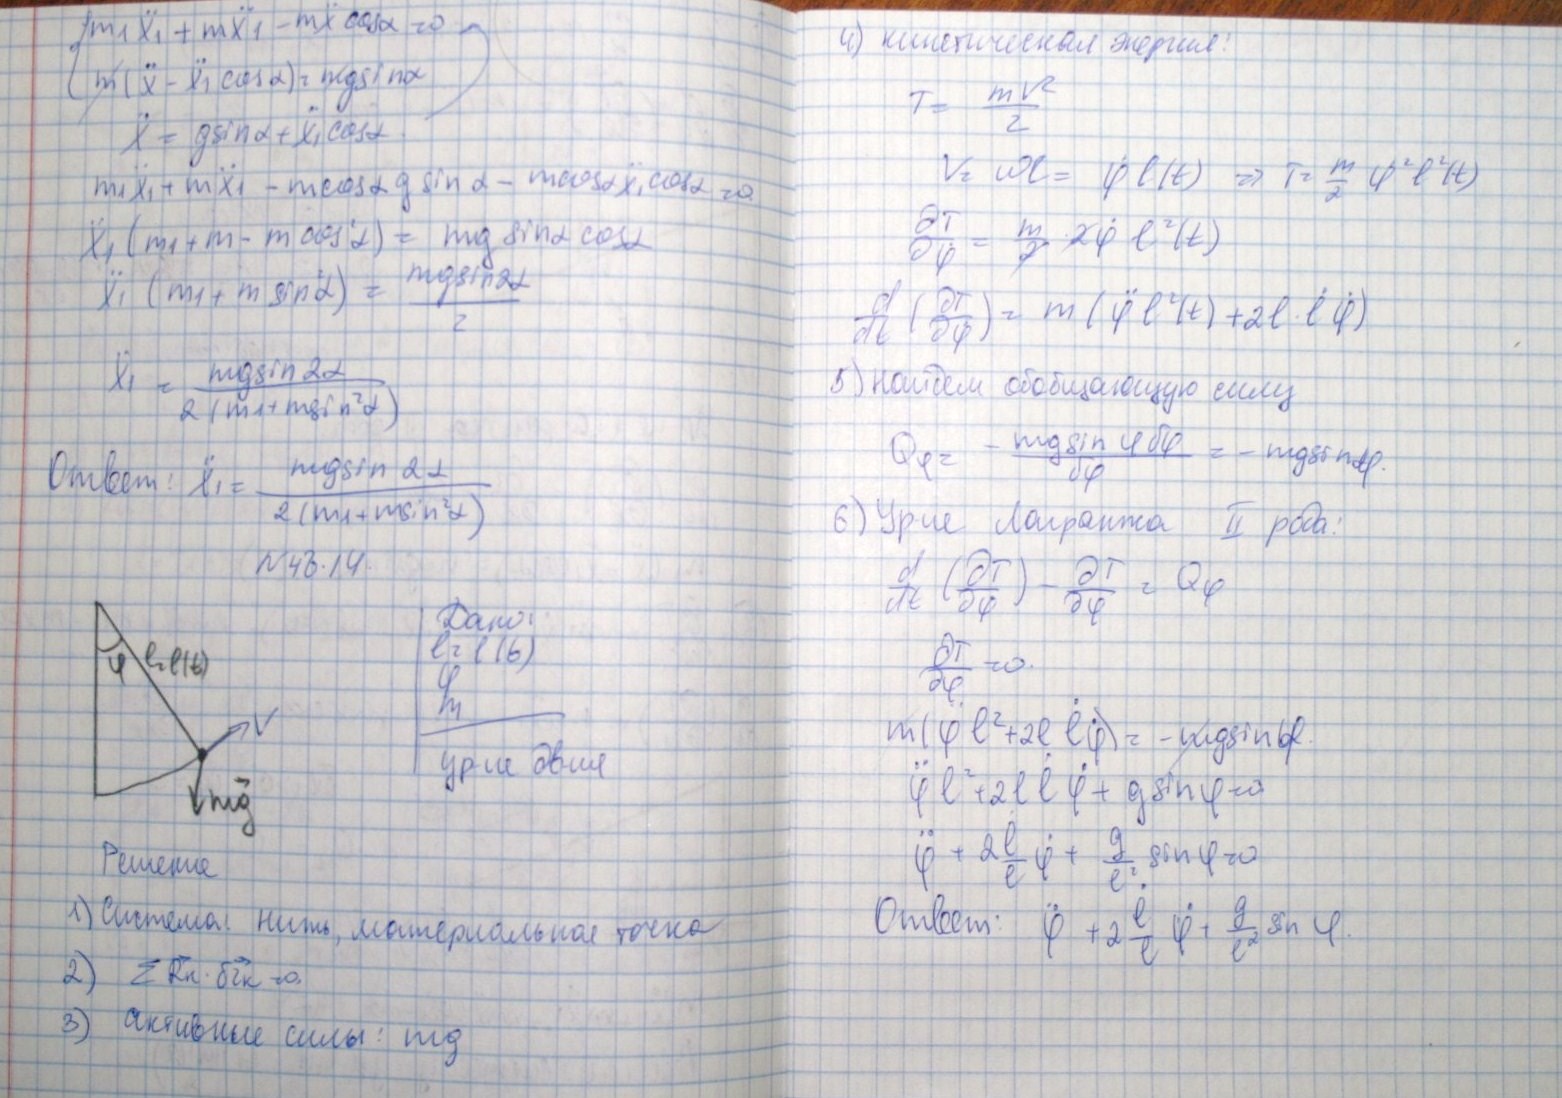 m₁ẍ₁ + mẍ₁ - mẍ cosα = 0
m(ẍ - ẍ₁ cosα) = mg sinα
ẍ = g sinα + ẍ₁ cosα
m₁ẍ₁ + mẍ₁ - m cosα g sinα - m cosα ẍ₁ cosα = 0
ẍ₁ (m₁ + m - m cos²α) = mg sinα cosα
ẍ₁ (m₁ + m sin²α) = mg sin2α / 2
ẍ₁ = mg sin2α / 2(m₁ + m sin²α)
Ответ: ẍ₁ = mg sin2α / 2(m₁ + m sin²α)
N48.14
φ
l = l(t)
V
mg⃗
Дано:
l = l(t)
φ
m
ур-ие дв-ия
Решение
1) Система: нить, материальная точка
2) Σ R⃗ₖ · δr⃗ₖ = 0.
3) Активные силы: mg
4) кинетическая энергия:
T = mV² / 2
V = ωl = φ̇ l(t) => T = m/2 φ̇² l²(t)
∂T/∂φ̇ = m/2 · 2φ̇ l²(t)
d/dt (∂T/∂φ̇) = m(φ̈ l²(t) + 2l · l̇ φ̇)
5) Найдем обобщающую силу
Qφ = - mg sinφ δφ / δφ = - mg sinφ.
6) Ур-ие Лагранжа II рода:
d/dt (∂T/∂φ̇) - ∂T/∂φ = Qφ
∂T/∂φ = 0.
m(φ̈ l² + 2l l̇ φ̇) = - mg sinφ.
φ̈ l² + 2l l̇ φ̇ + g sinφ = 0
φ̈ + 2 l̇/l φ̇ + g/l² sinφ = 0
Ответ: φ̈ + 2 l̇/l φ̇ + g/l² sin φ.